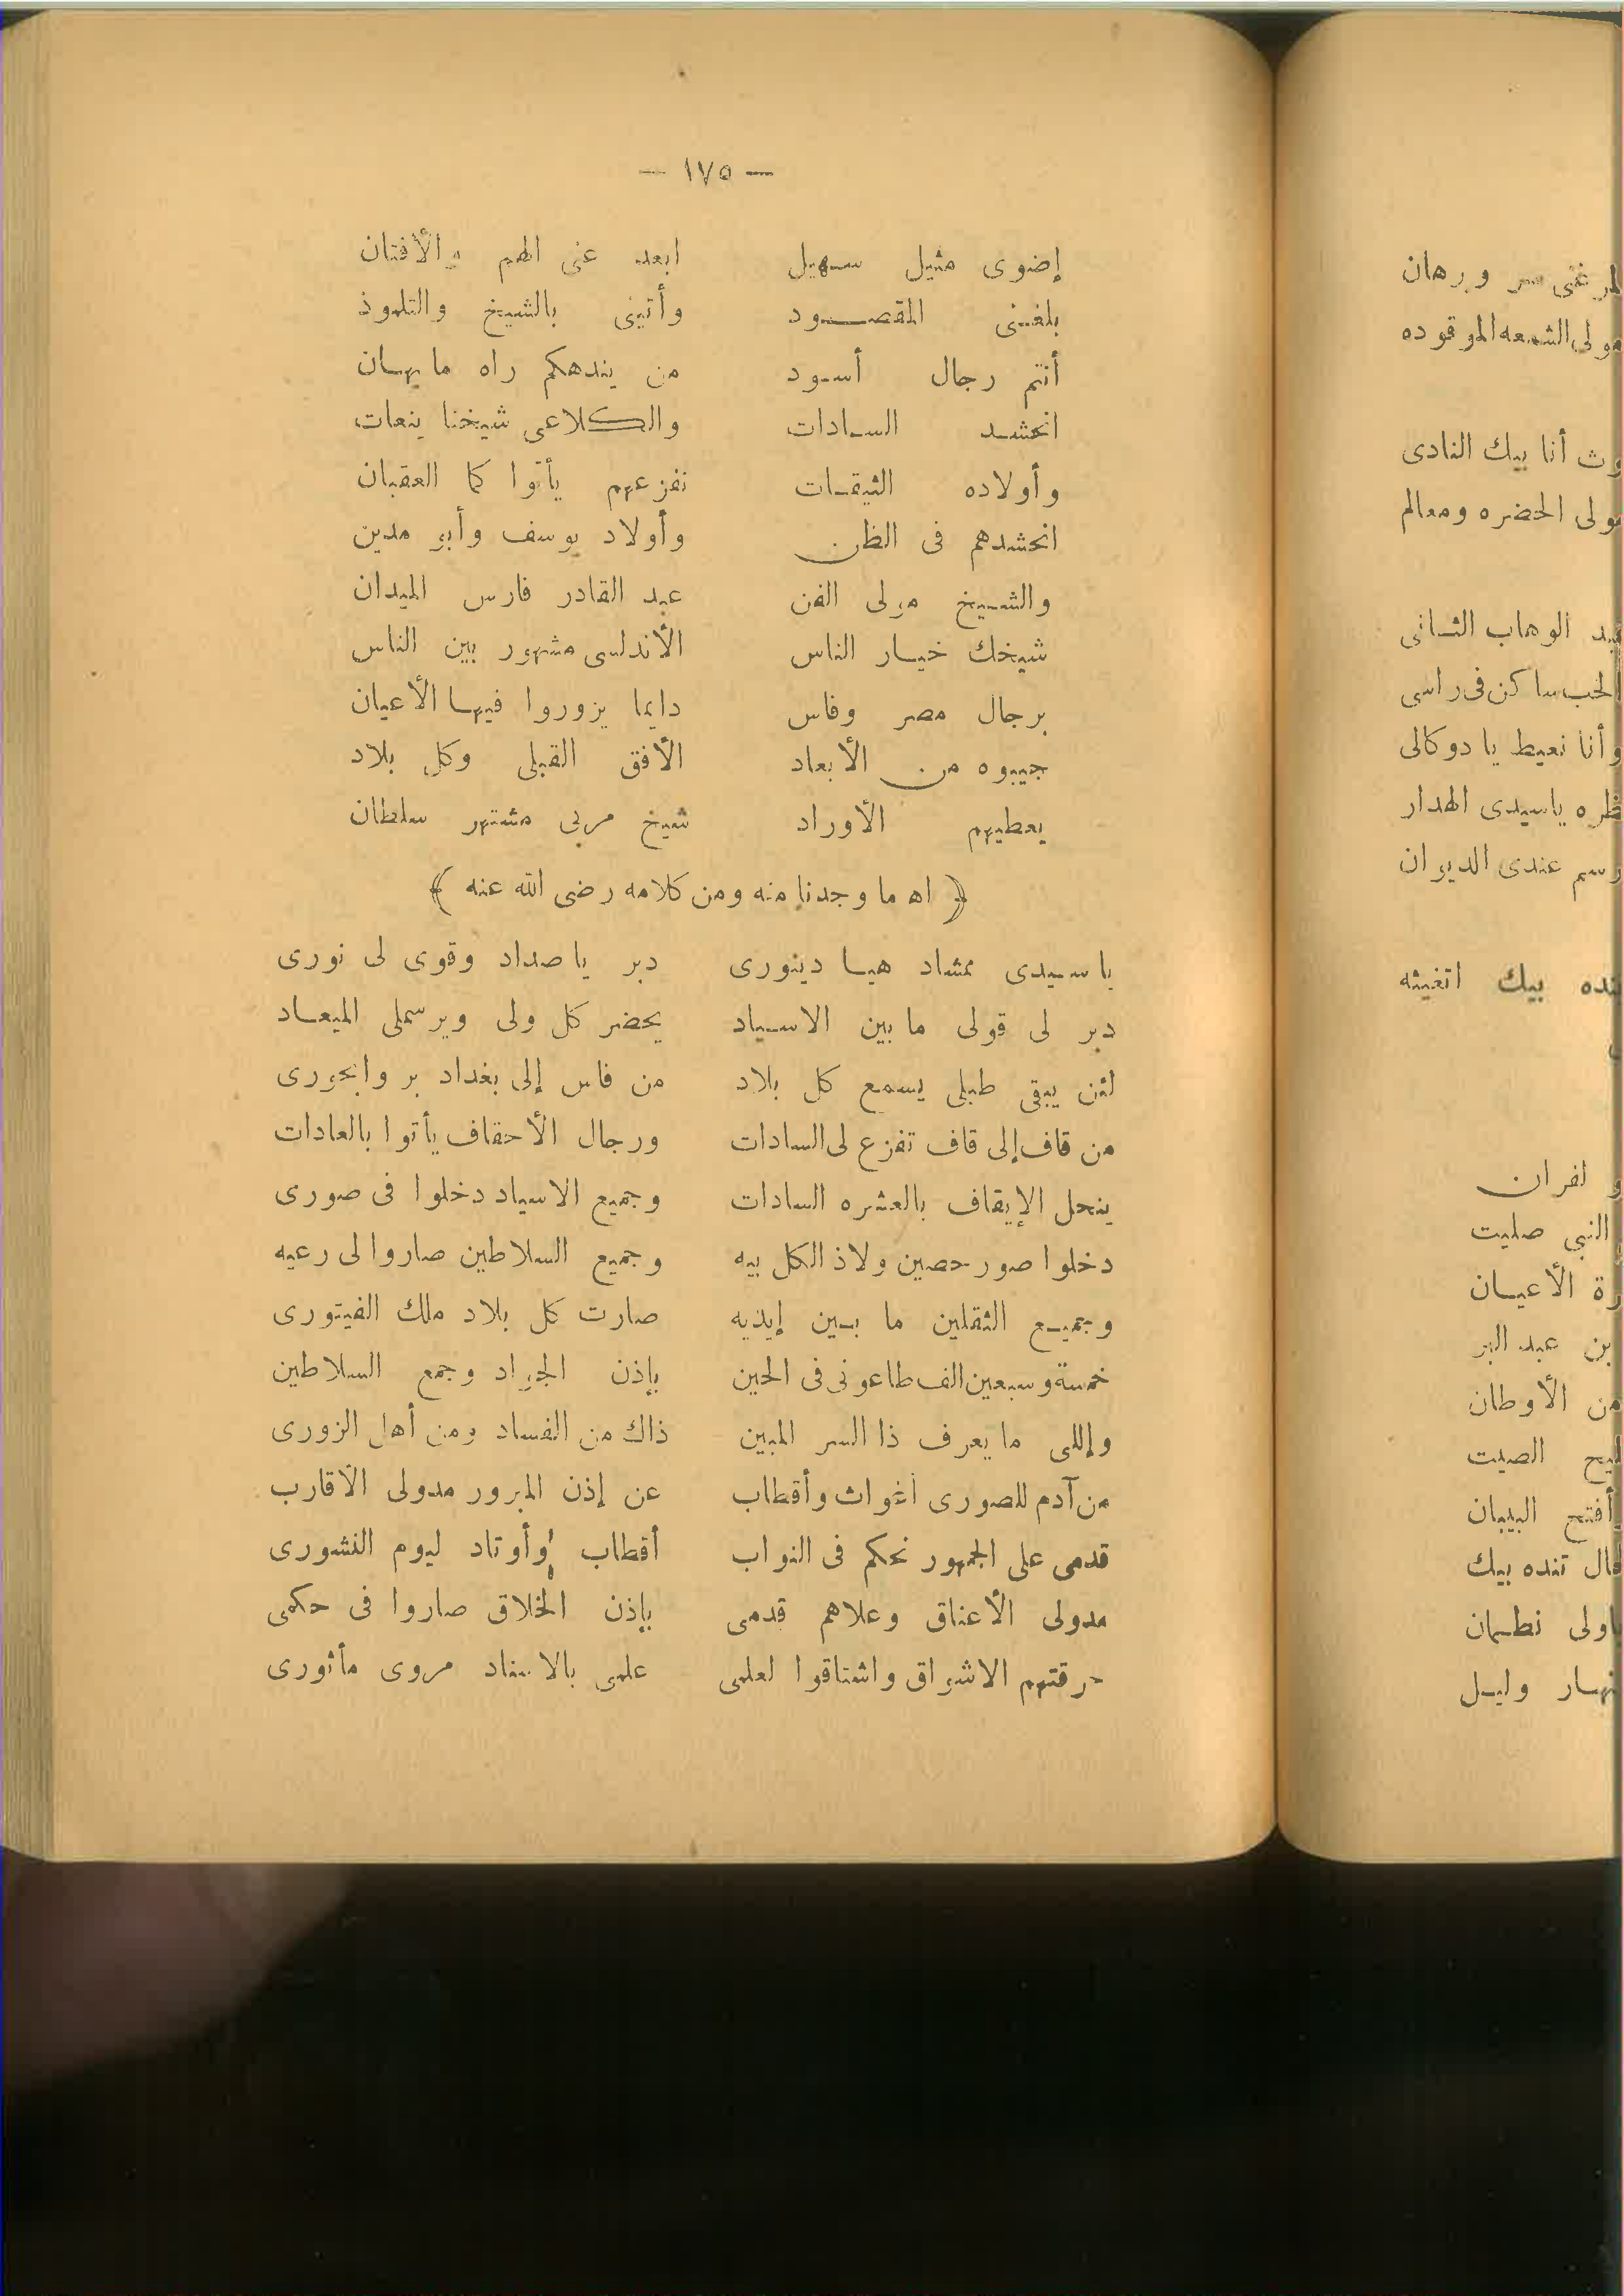 — ١٧٥ —
إضوى مثيل سهيل ابعد عنى الهم والأفتان
بلغنى المقصود وأتينى بالشيخ والتلموذ
أنتم رجال أسود من يندهكم راه ما يهان
انحشد السادات والكلاعى شيخنا ينعات
وأولاده الثيقات تفزعهم يأتوا كما العقبان
انحشدهم فى الظن وأولاد يوسف وأبو مدين
والشيخ مولى الفن عبد القادر فارس الميدان
شيخك خيار الناس الأندلسى مشهور بين الناس
برجال مصر وفاس دايما يزوروا فيها الأعيان
جيبوه من الأبعاد الأفق القبلى وكل بلاد
يعطيهم الأوراد شيخ مربى مشتهر سلطان
﴿ اه ما وجدنا منه ومن كلامه رضى الله عنه ﴾
يا سيدى ممشاد هيا دينورى دبر يا صداد وقوى لى نورى
دبر لى قولى ما بين الاسياد يحضر كل ولى ويرسملى الميعاد
لئن يبقى طبلى يسمع كل بلاد من فاس إلى بغداد بر وابحورى
من قاف إلى قاف تفزع لى السادات ورجال الأحقاف يأتوا بالعادات
ينحل الإيقاف بالعشره السادات وجميع الاسياد دخلوا فى صورى
دخلوا صور حصين ولاذ الكل بيه وجميع السلاطين صاروا لى رعيه
وجميع الثقلين ما بين إيذيه صارت كل بلاد ملك الفيتورى
خمسة وسبعين الف طاعونى فى الحين بإذن الجواد وجمع السلاطين
وإللى ما يعرف ذا السر المبين ذاك من الفساد ومن أهل الزورى
من آدم للصورى أغواث وأقطاب عن إذن المبرور مدولى الأقارب
قدمى على الجمهور نحكم فى النواب أقطاب وأوتاد ليوم النشورى
مدولى الأعناق وعلاهم قدمى بإذن الخلاق صاروا فى حكمى
حرقتهم الاشواق واشتاقوا لعلمى علمى بالاسناد مروى مأثورى
سر وبرهان
مولى الشمعه الموقوده
أنا بيك النادى
مولى الحضره ومعالم
الوهاب الثانى
الحب ساكن فى راسى
وأنا نعيط يا دوكالى
ياسيدى الهدار
عندى الديوان
بيك اتغيثه
النبى صليت
الأعيان
بن عبد البر
من الأوطان
الصيت
أفتح البيبان
تنده بيك
نطمان
وليل